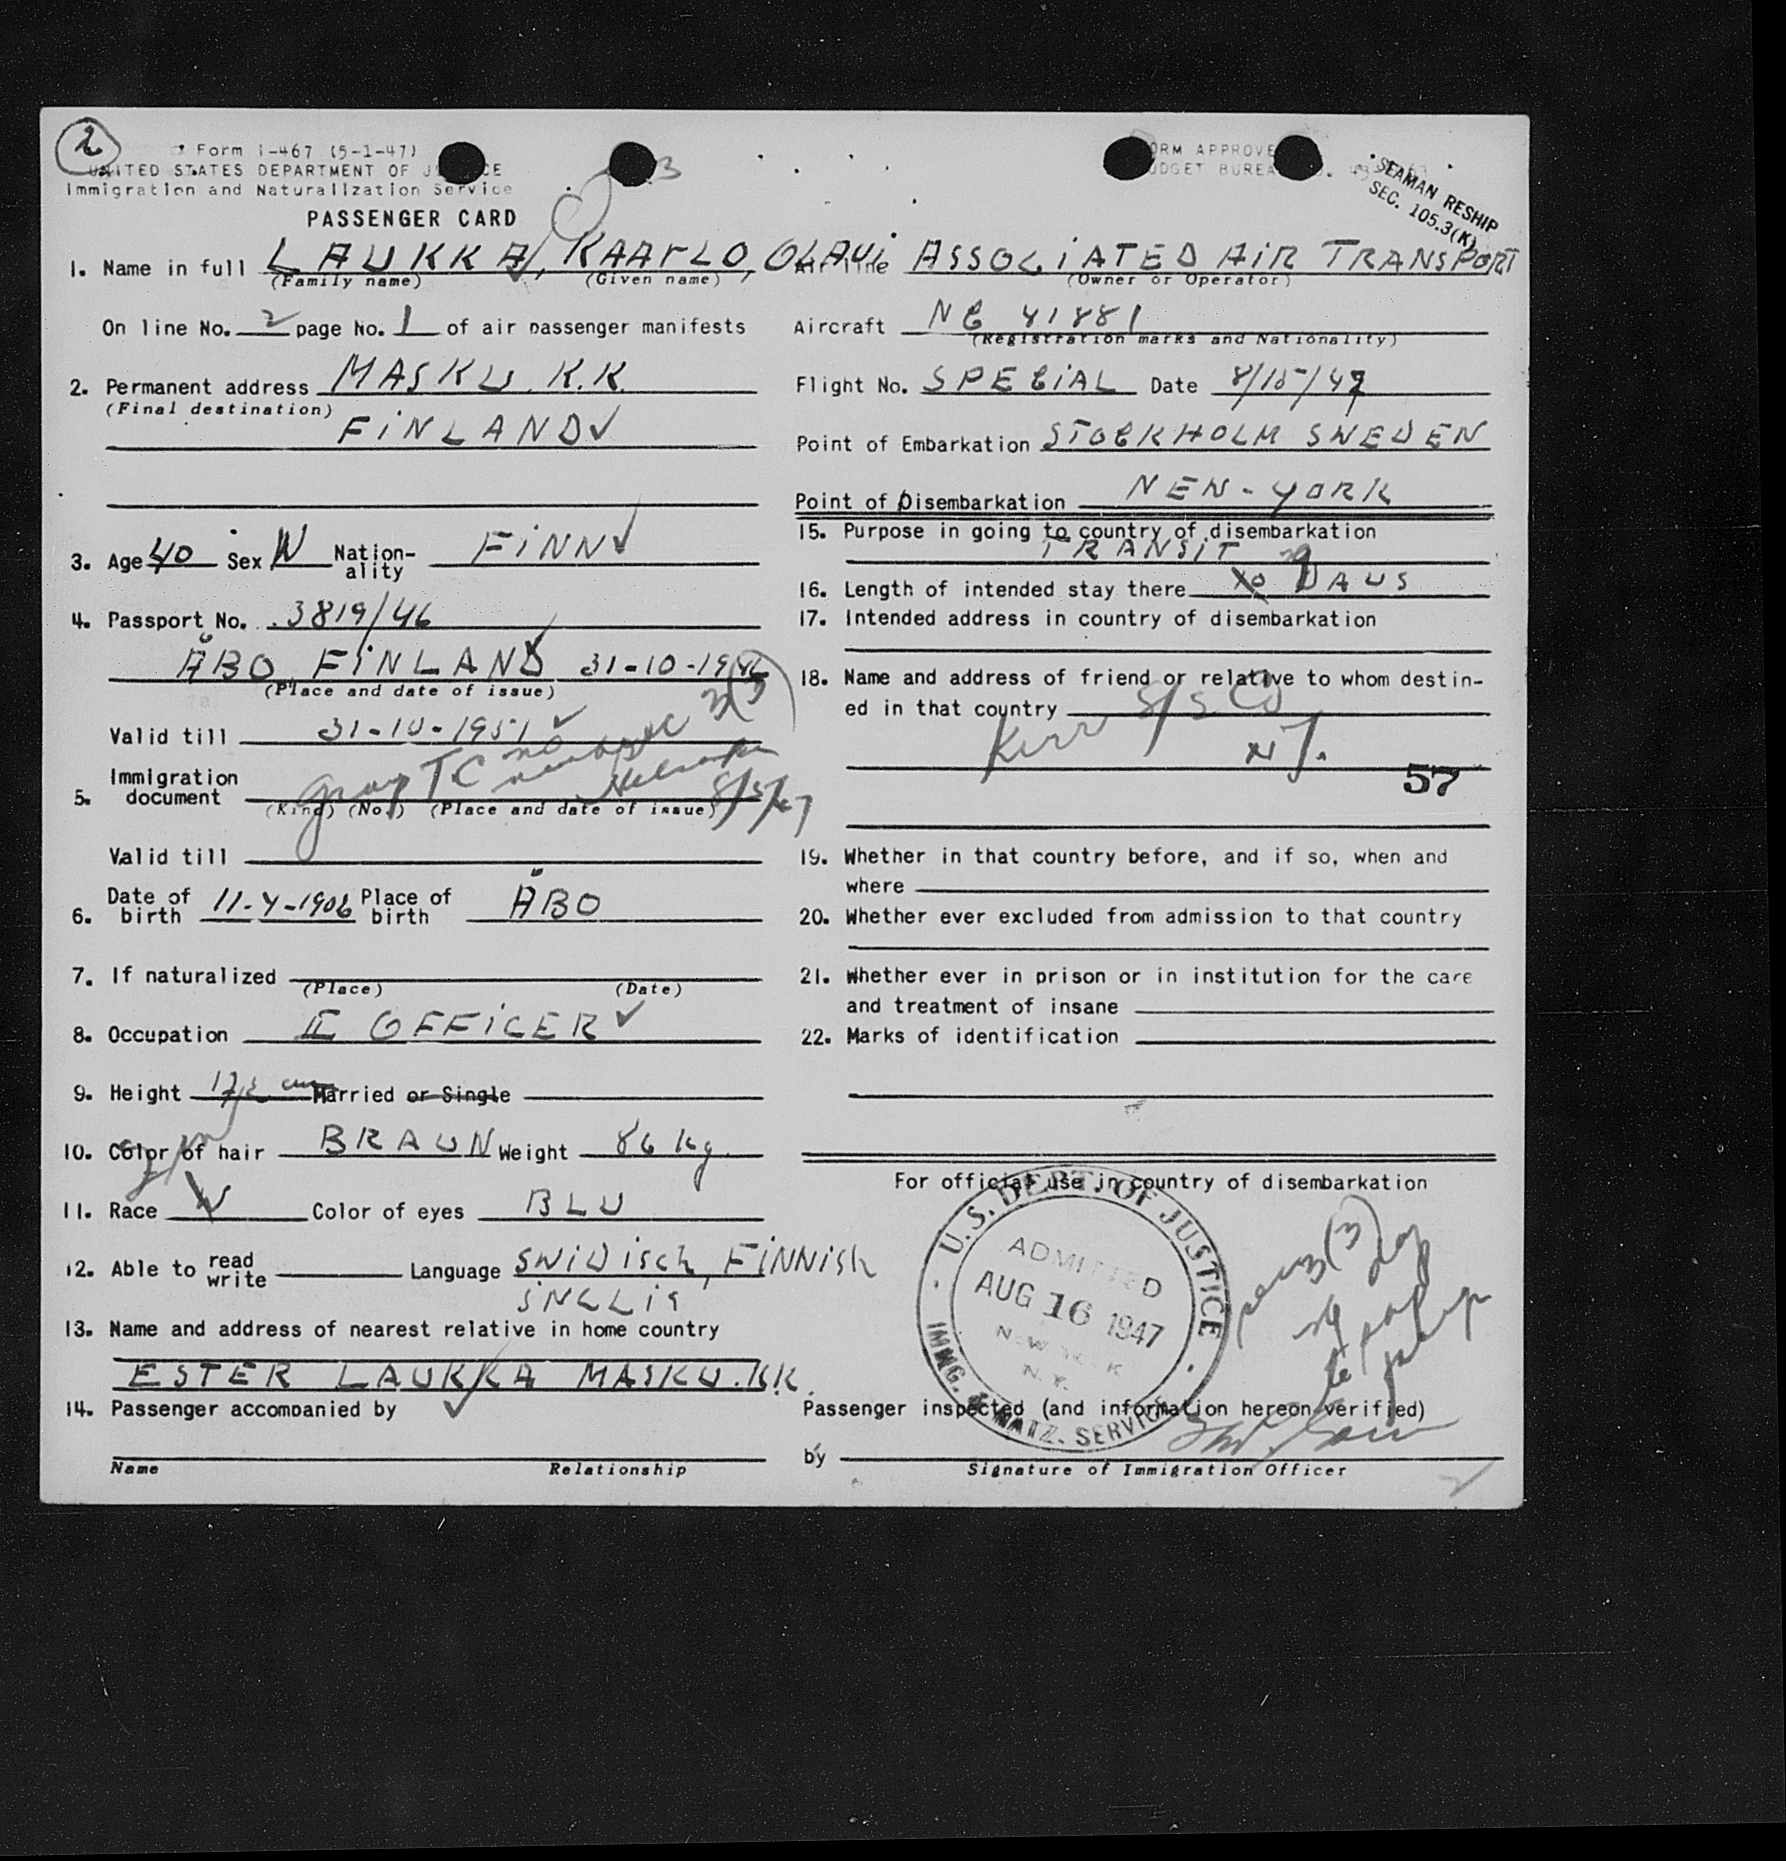 2
Form I-467 (5-1-47)
UNITED STATES DEPARTMENT OF J CE
Immigration and Naturalization Service
PASSENGER CARD
3
FORM APPROVE
BUDGET BUREA
SEAMAN RESHIP
SEC. 105.3(K)
1. Name in full LAUKKA, KAARLO, OLAVI
(Family name) (Given name)
On line No. 2 page No. 1 of air passenger manifests
2. Permanent address MASKU. K.K.
(Final destination) FINLAND
3. Age 40 Sex Nation-ality FINN
4. Passport No. 3819/46
ÅBO FINLAND 31-10-1946
(Place and date of issue)
Valid till 31-10-1951
5. Immigration document
(Kind) (No.) (Place and date of issue)
8/5/47
Valid till
6. Date of birth 11-4-1906 Place of birth ÅBO
7. If naturalized
(Place) (Date)
8. Occupation II OFFICER
9. Height cm Married or Single
10. Color of hair BRAUN Weight 86 kg
11. Race W Color of eyes BLU
12. Able to read write Language SWIDISCH, FINNISH
13. Name and address of nearest relative in home country
ESTER LAUKKA MASKU. KK.
14. Passenger accompanied by
Name Relationship
Air line ASSOCIATED AIR TRANSPORT
(Owner or Operator)
Aircraft NC 41881
(Registration marks and Nationality)
Flight No. SPECIAL Date 8/15/47
Point of Embarkation STOCKHOLM SWEDEN
Point of Disembarkation NEW-YORK
15. Purpose in going to country of disembarkation
TRANSIT
16. Length of intended stay there DAUS
17. Intended address in country of disembarkation
18. Name and address of friend or relative to whom destin-
ed in that country
Kerr S/S Co
NY.
57
19. Whether in that country before, and if so, when and
where
20. Whether ever excluded from admission to that country
21. Whether ever in prison or in institution for the care
and treatment of insane
22. Marks of identification
For official use in country of disembarkation
U.S. DEPT. OF JUSTICE
ADMITTED
AUG 16 1947
NEW YORK
N.Y.
IMMG. & NATZ. SERVICE
Passenger inspected (and information hereon verified)
by
Signature of Immigration Officer